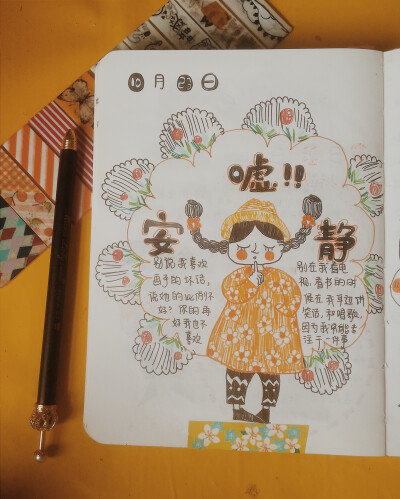 10月23日
嘘!!
安静
别说我喜欢
画手的坏话,
说她的比例不
好?你的再
好我也不
喜欢
别在我看电
视,看书的时
候在我耳边讲
笑话,和唱歌,
因为我只能专
注于一件事